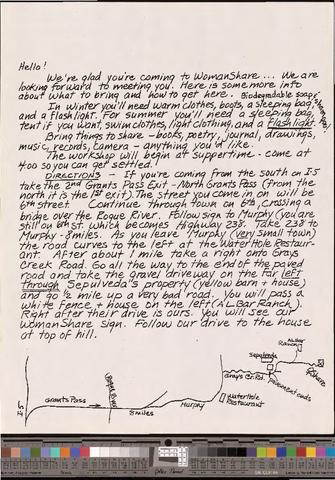 Hello!
We're glad you're coming to WomanShare ... We are
looking forward to meeting you. Here is some more info
about what to bring and how to get here. Biodegradable soap &
In winter you'll need warm clothes, boots, a sleeping bag,
and a flashlight. For summer you'll need a sleeping bag,
tent if you want, swim clothes, light clothing, and a flashlight.
Bring things to share - books, poetry, journal, drawings,
music, records, camera - anything you'd like.
The workshop will begin at suppertime - come at
4:00 so you can get settled.
DIRECTIONS - If you're coming from the south on I-5
take the 2nd Grants Pass Exit - North Grants Pass (from the
north it is the 1st exit). The street you come in on will be
6th street. Continue through town on 6th, crossing a
bridge over the Rogue River. Follow sign to Murphy (you are
still on 6th st. which becomes Highway 238. Take 238 to
Murphy - 8 miles. As you leave Murphy (very small town)
the road curves to the left at the WaterHole Restaur-
ant. After about 1 mile take a right onto Grays
Creek Road. Go all the way to the end of the paved
road and take the gravel driveway on the far left
through Sepulveda's property (yellow barn + house)
and go ½ mile up a very bad road. You will pass a
white fence + house on the left (A.L. Bar Ranch).
Right after their drive is ours. You will see our
WomanShare sign. Follow our drive to the house
at top of hill.
AL Bar
Ranch
Sepulveda
W Share
Grays Cr. Rd.
pavement ends
I-5
Grants Pass
Rogue River
8 miles
Murphy
WaterHole
Restaurant